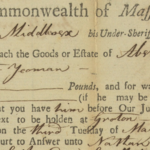 ommonwealth of Mass
Middlesex his Under-Sherif
ach the Goods or Estate of Ab
Yeoman
Pounds, and for w
(if he may be
at you have him before Our Ju
ext to be holden at Groton
third Tuesday of Ma
urt to Answer unto Nathan